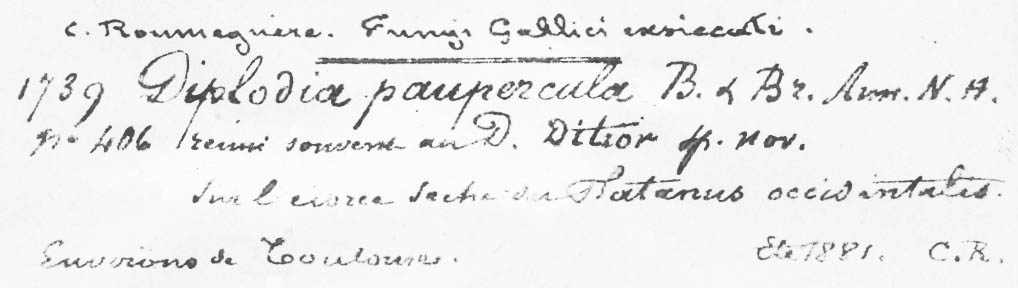 C. Roumeguere. Fungi Gallici exsiccati.
1739 Diplodia paupercula B. & Br. Ann. N. H.
No 406 réuni souvent au D. Ditior sp. nov.
Sur l'ecorce seche du Platanus occidentalis.
Environs de Toulouse. Eté 1881. C. R.